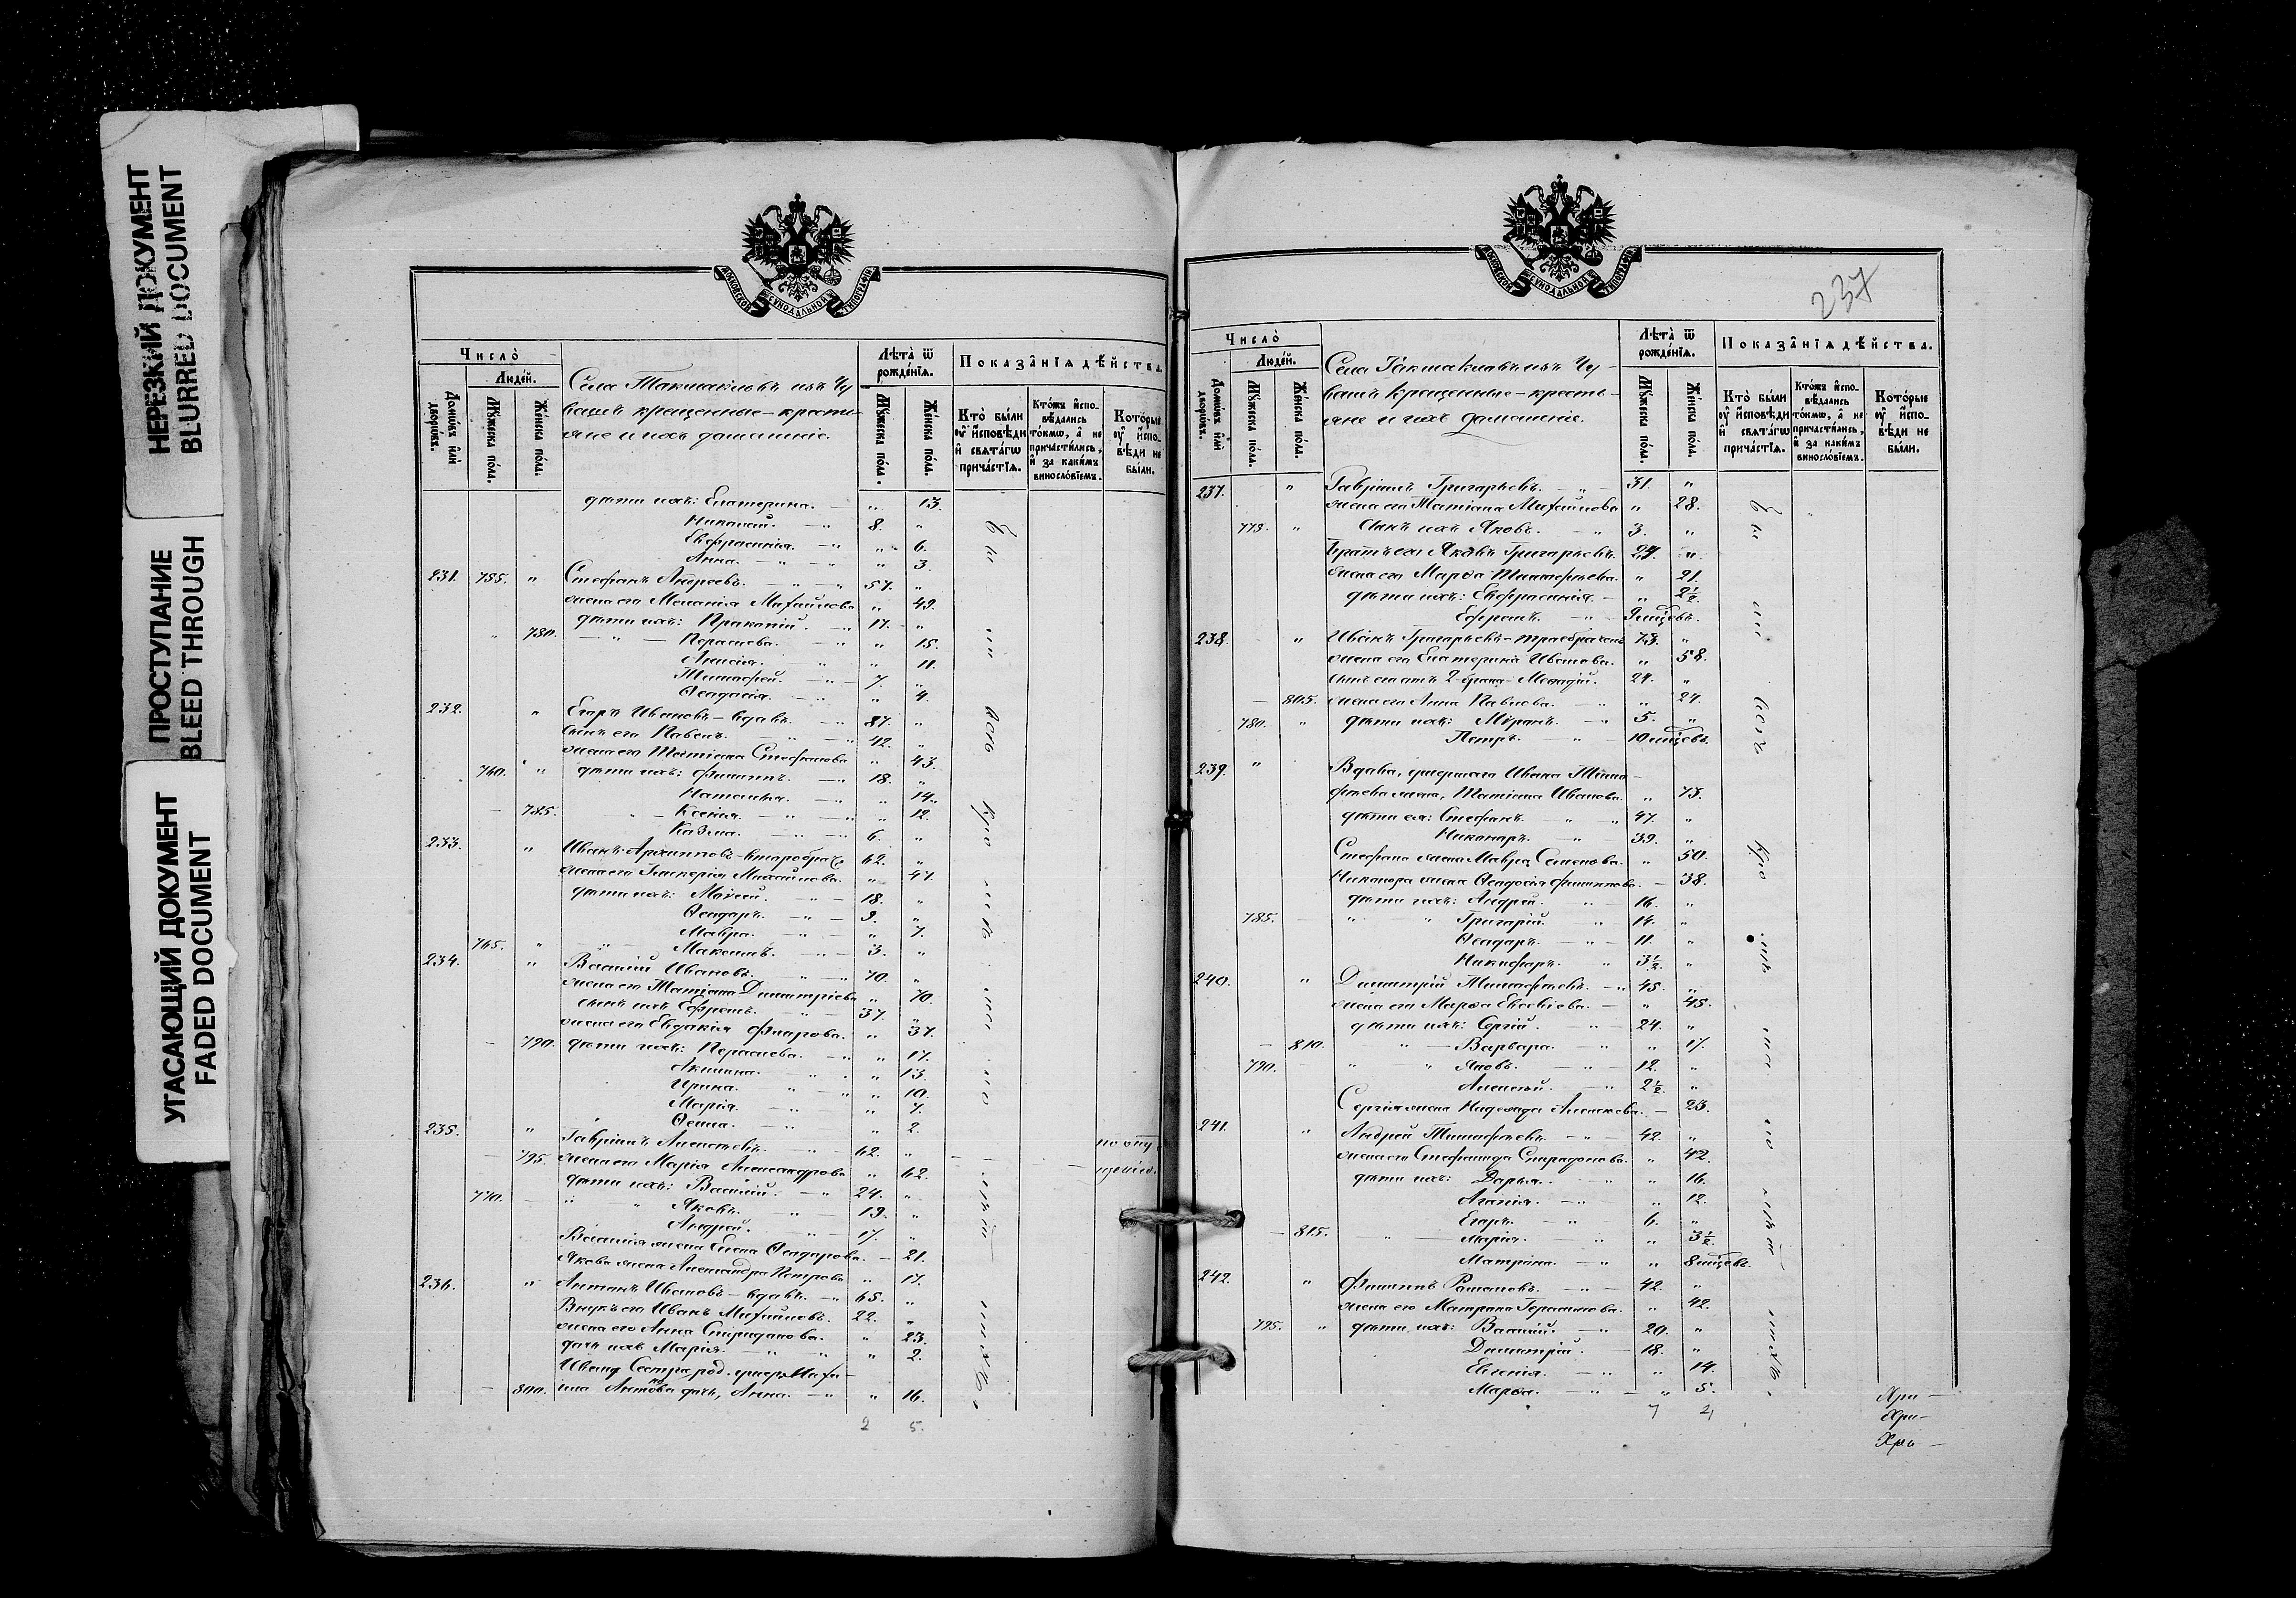 НЕРЕЗКИЙ ДОКУМЕНТ
BLURRED DOCUMENT
ПРОСТУПАНИЕ
BLEED THROUGH
УГАСАЮЩИЙ ДОКУМЕНТ
FADED DOCUMENT
МОСКОВСКОЙ СѴНОДАЛЬНОЙ ТИПОГРАФІИ
Число̀
Людей.
Домѡвъ и҆лѝ дворѡвъ.
Мꙋ́жеска по́ла.
Же́нска по́ла.
Села Такмаклов изъ Чу
вашъ крещенные - кресть-
яне и ихъ домашніе.
Лѣта̀ ѿ рожде́нїѧ.
Мꙋ́жеска по́ла.
Же́нска по́ла.
Показа̑нїѧ дѣ́йства.
Кто̀ бы́ли оу҆ и҆сповѣди и҆ свѧта́гѡ прича́стїѧ.
Кто́жъ и҆спо-вѣдались то́кмѡ, а҆ не причасти́лись, и҆ за каки́мъ винословіемъ.
Кото́рые оу҆ и҆спо-вѣди не бы́ли.
дѣти ихъ: Екатерина. — „ 13.
Николай. — „ 8. „
Евфросинія. — „ „ 6.
Анна. — „ — „ „ 3.
231. 755. „ Стефанъ Андреевъ. — „ 57. „
жена его Меланія Михайлова „ 49.
дѣти ихъ: Прокопій. — „ 17. „
„ 780. — „ — Параскева. — „ „ 15.
Анисія. „ „ 11.
Тимофей. — „ 7. „
Ѳеодосія. — „ „ 4.
232. „ Егоръ Ивановъ - вдовъ. — „ 87. „
сынъ его Павелъ. — „ — „ 42. „
жена его Татіана Стефанова „ 43.
760. „ дѣти ихъ: Филиппъ. — „ 18. „
Наталья. — „ „ 14.
— 785. „ — Ксенія. — „ — „ 12.
Казма. — „ — 6. „
233. „ Иванъ Архипповъ - второбрач. 62. „
жена его Гликерія Михайлова. „ 47.
дѣти ихъ: Моѵсей. — „ — 18. „
Ѳеодоръ. — „ — 9. „
Мавра. — „ — „ 7.
765. „ — „ — Максимъ. — „ — 3. „
234. „ Василій Ивановъ. „ — „ 70. „
жена его Татіана Димитріева „ 70.
сынъ ихъ Ефремъ. — „ — 37. „
жена его Евдокія Фларова. „ 37.
— 790. дѣти ихъ: Параскева. — „ „ 17.
Акилина. — „ „ „ 13.
Ирина. „ — „ „ 10.
Марія. — „ „ 7.
Ѳекла. — „ „ 2.
235. „ Гавріилъ Алексѣевъ. — „ — 62. „
— 795. жена его Марія Александрова „ 62.
дѣти ихъ: Василій. — „ 24. „
770. „ „ Яковъ. — „ — 19. „
Андрей. „ — 17. „
Василія жена Елена Ѳеодорова. — 21.
Якова жена Александра Петрова „ 17.
236. „ Антонъ Ивановъ - вдовъ. — „ 65. „
Внукъ его Иванъ Михайловъ. 22. „
жена его Анна Спиридонова. „ 23.
дочь ихъ Марія. — „ „ „ 2.
Ивану Сестра, род. умер. Миха-
— 800. ила Антонова дочь, Анна. — „ „ 16.
2 5.
по опу
щенію.
237
МОСКОВСКОЙ СѴНОДАЛЬНОЙ ТИПОГРАФІИ
Число̀
Людей.
Домѡвъ и҆лѝ дворѡвъ.
Мꙋ́жеска по́ла.
Же́нска по́ла.
Села Такмаклов изъ Чу-
вашъ крещенные - кресть-
яне и ихъ домашніе.
Лѣта̀ ѿ рожде́нїѧ.
Мꙋ́жеска по́ла.
Же́нска по́ла.
Показа̑нїѧ дѣ́йства.
Кто̀ бы́ли оу҆ и҆сповѣди и҆ свѧта́гѡ прича́стїѧ.
Кто́жъ и҆спо-вѣдались то́кмѡ, а҆ не причасти́лись, и҆ за каки́мъ винословіемъ.
Кото́рые оу҆ и҆спо-вѣди не бы́ли.
237. „ Гавріилъ Григорьевъ. — „ — 31. „
жена его Татіана Михайлова „ 28.
775. „ сынъ ихъ Яковъ. — „ 3. „
Братъ его Яковъ Григорьевъ. 27. „
жена его Марѳа Тимофѣева. „ 21.
дѣти ихъ: Евфросинія. — „ 2½.
Ефремъ. — „ — 9 мцевъ.
238. „ Иванъ Григорьевъ - троебрачн. 73. „
жена его Екатерина Иванова. „ 58.
сынъ его отъ 2 брака Меѳодій. 24. „
— 805. жена его Анна Павлова. — „ „ 24.
780. „ дѣти ихъ: Миронъ. — „ 5. „
Петръ. — „ — 10 мцевъ.
239. „ Вдова, умершаго Ивана Тимо-
фѣева жена, Татіана Иванова. „ 73.
дѣти ея: Стефанъ. „ „ 47. „
Никаноръ. — „ — 39. „
Стефана жена Мавра Семенова. „ 50.
Никанора жена Ѳеодосія Филиппова. — 38.
дѣти ихъ: Андрей. „ — 16. „
785. — „ „ Григорій. — „ — 14. „
Ѳеодоръ. — „ — 11. „
Никифоръ. „ 3½. „
240. „ Димитрій Тимофѣевъ. — „ 45. „
жена его Марѳа Евсевіова. — „ 45.
дѣти ихъ: Сергій. — „ 24. „
— 810. „ — Варвара. — „ „ 17.
790. „ „ Яковъ. — „ — 12. „
Алексѣй. — „ 2½. „
Сергія жена Надежда Алексѣева. — 23.
241. „ Андрей Тимофѣевъ. — „ — 42. „
жена его Стефанида Спиридонова. „ 42.
дѣти ихъ: Дарья. — „ „ 16.
Агапія. — „ „ 12.
Егоръ. — „ 6. „
— 815. „ — Марія. „ „ 3½.
Матрона. — „ „ 8 мцевъ.
242. „ Филиппъ Романовъ. — „ — 42. „
жена его Матрона Герасимова. „ 42.
795. „ дѣти ихъ: Василій. — „ 20. „
Димитрій. — 18. „
Евгенія. — „ „ 14.
Марѳа. — „ — „ 5.
7 2
Хри —
Хри —
Хри —